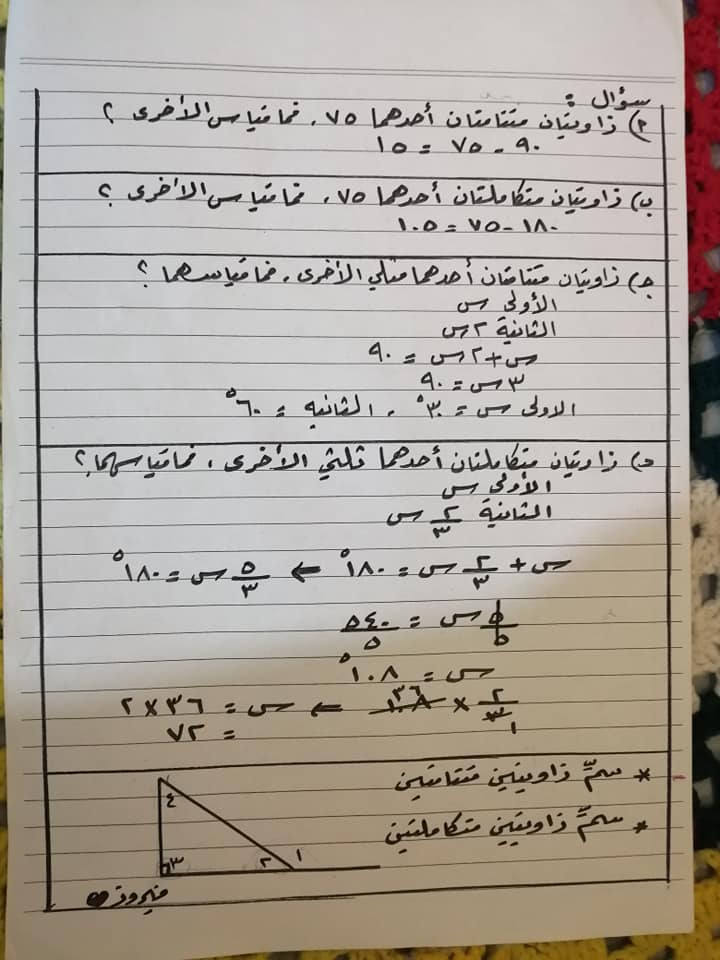 سؤال :
أ) زاويتان متتامتان أحدهما ٧٥ ، فما قياس الأخرى ؟
٩٠ - ٧٥ = ١٥
ب) زاويتان متكاملتان أحدهما ٧٥ ، فما قياس الأخرى ؟
١٨٠ - ٧٥ = ١٠٥
جـ) زاويتان متتامتان أحدهما مثلي الأخرى ، فما قياسهما ؟
الأولى س
الثانية ٢س
س + ٢س = ٩٠
٣س = ٩٠
الاولى س = ٣٠° ، الثانيه = ٦٠°
د) زاويتان متكاملتان أحدهما ثلثي الأخرى ، فما قياسهما ؟
الأولى س
الثانية ٢/٣ س
س + ٢/٣ س = ١٨٠° ← ٥/٣ س = ١٨٠°
٥/٥ س = ٥٤٠/٥
س = ١٠٨°
٢/٣ × ١٠٨ ← س = ٣٦ × ٢
٣٦
١
= ٧٢
* سمِّ زاويتين متتامتين
* سمِّ زاويتين متكاملتين
٤
٣ ٢ ١
فيروز